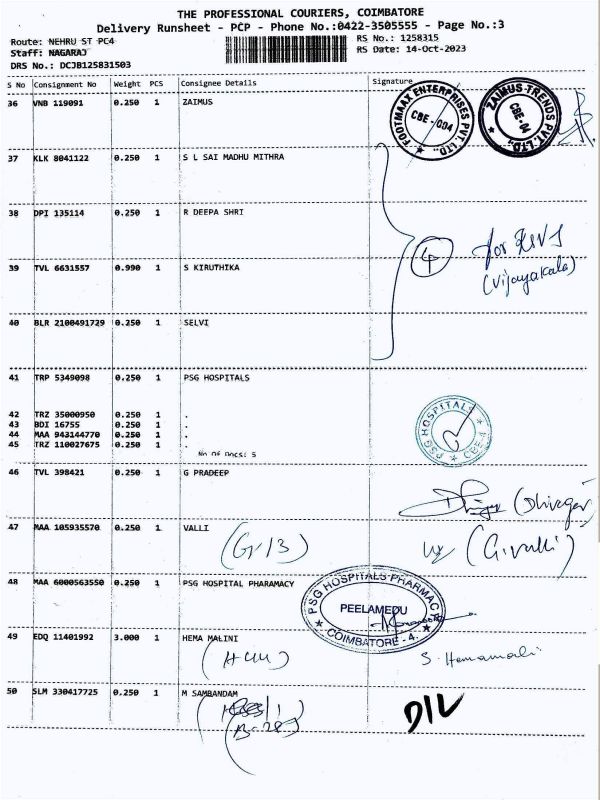 THE PROFESSIONAL COURIERS, COIMBATORE
Delivery Runsheet - PCP - Phone No.:0422-3505555 - Page No.:3
Route: NEHRU ST PC4
RS No.: 1258315
Staff: NAGARAJ
RS Date: 14-Oct-2023
DRS No.: DCJB125831503
S No Consignment No Weight PCS Consignee Details Signature
36 VNB 119091 0.250 1 ZAIMUS
FOOTMAAX ENTERPRISES PVT. LTD.,
CBE-004
ZAIMUS TRENDS PVT. LTD.,
CBE-04
37 KLK 8041122 0.250 1 S L SAI MADHU MITHRA
38 DPI 135114 0.250 1 R DEEPA SHRI
4
for
(Vijayakala)
39 TVL 6631557 0.990 1 S KIRUTHIKA
40 BLR 2100491729 0.250 1 SELVI
41 TRP 5349098 0.250 1 PSG HOSPITALS
42 TRZ 35000950 0.250 1 .
43 BDI 16755 0.250 1 .
44 MAA 943144770 0.250 1 .
45 TRZ 110027675 0.250 1 .
No Of Docs: 5
PSG HOSPITALS
CBE-4
46 TVL 398421 0.250 1 G PRADEEP
47 MAA 105935570 0.250 1 VALLI
(G.Valli)
48 MAA 6000563550 0.250 1 PSG HOSPITAL PHARAMACY
PSG HOSPITALS PHARMACY
PEELAMEDU
COIMBATORE - 4.
49 EDQ 11401992 3.000 1 HEMA MALINI
S. Hemamali
50 SLM 330417725 0.250 1 M SAMBANDAM
D/L